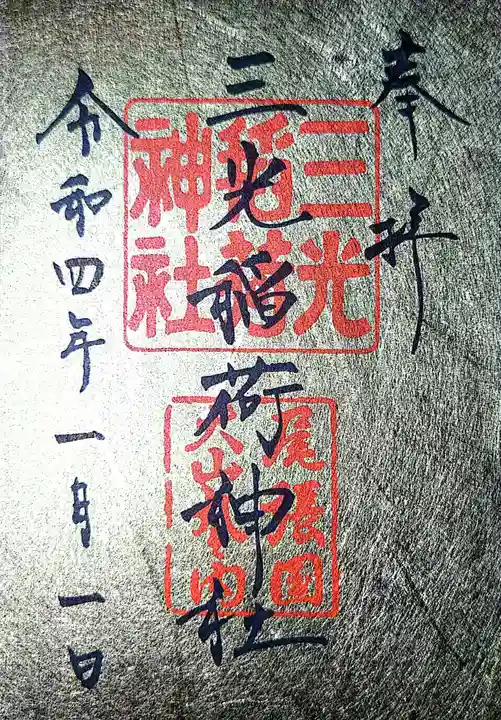 奉拝
三光稲荷神社
三光
稲荷
神社
尾張国
犬山城内
令和四年一月一日